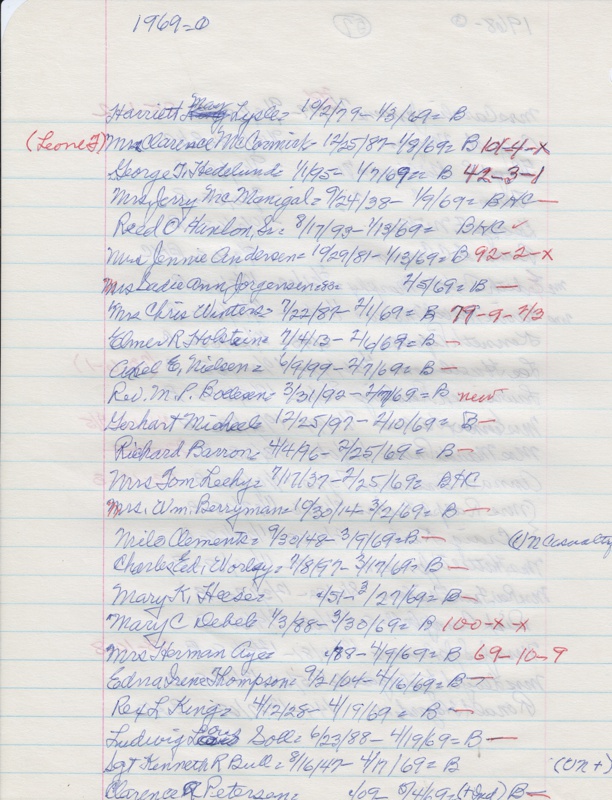 1969=0
Harriett May Lysle= 10/2/79- 1/3/69= B
(Leone J) Mrs Clarence McCormick- 12/25/87- 1/8/69= B 101-4-x
George T. Hedelund= 1/1/95- 1/7/69= B 42-3-1
Mrs Jerry McManigal= 9/24/38- 1/9/69= BHC —
Reed C Hanlon, Sr= 8/17/93- 1/13/69= BHC ✓
Mrs Jennie Andersen= 10/29/81- 1/13/69= B 92-2-x
Mrs Sadie Ann Jorgensen= 2/5/69= B —
Mrs Chris Winters= 7/22/87- 2/1/69= B 79-9-2/3
Elmer R Holstein= 7/4/13- 2/6/69= B —
Axel E, Nielsen= 6/9/99- 2/7/69= B —
Rev. M. P. Boolesen= 3/31/92- 2/7/69= B new
Gerhart Micheel= 12/25/97- 2/10/69= B —
Richard Barron= 4/4/96- 2/25/69= B —
Mrs Tom Leehy= 7/17/37- 2/25/69= BHC
Mrs. Wm. Berryman= 10/30/14- 3/2/69= B —
Milo Clements= 9/30/48- 3/9/69= B — (V)N Casualty
Charles Ed, Worley= 7/8/97- 3/17/69= B —
Mary K, Heese= /51- 3/27/69= B —
Mary C Debel= 1/3/88- 3/30/69= B 100-x-x
Mrs Herman Aye= /88- 4/9/69= B 69-10-9
Edna Irene Thompson= 9/21/04- 4/16/69= B —
Rex L King= 4/12/28- 4/19/69= B —
Ludwig Soll= 6/23/88- 4/19/69= B —
Sgt Kenneth R Bull= 8/16/47- 4/17/69= B (V n+)
Clarence R Petersen= /09- 5/4/69= (+ And) B —